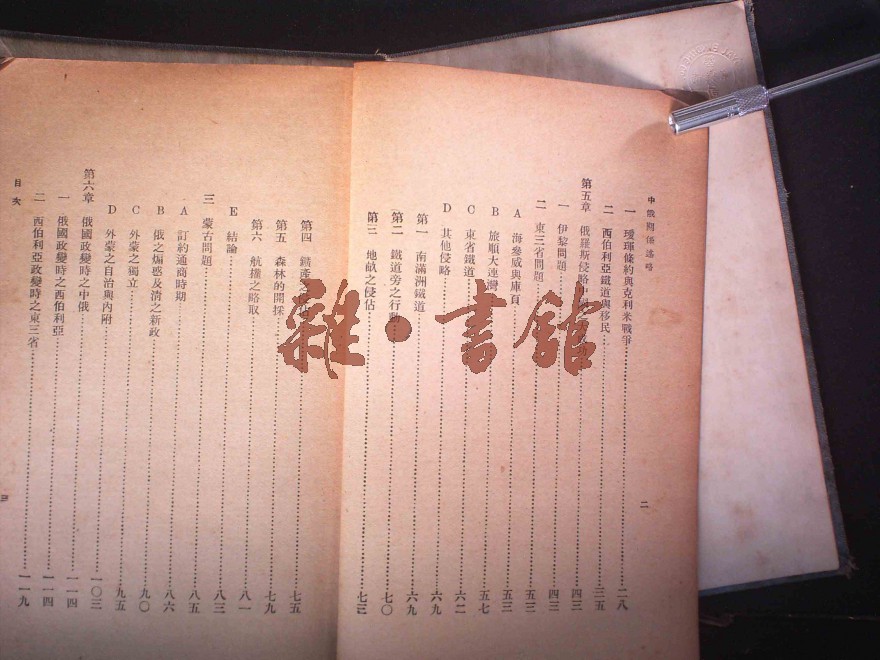 中俄關係述略
一 璦琿條約與克利米戰爭……二八
二 西伯利亞鐵道與移民……三五
第五章 俄羅斯侵略……四三
一 伊黎問題……四三
二 東三省問題……五三
A 海參威與庫頁……五三
B 旅順大連灣……五七
C 東省鐵道……六二
D 其他侵略……六九
第一 南滿洲鐵道……六九
第二 鐵道旁之行動……七〇
第三 地畝之侵佔……七三
二
第四 鑛產之……七五
第五 森林的開採……七九
第六 航權之略取……八一
E 結論……八三
三 蒙古問題……八五
A 訂約通商時期……八六
B 俄之煽惑及清之新政……九〇
C 外蒙之獨立……九五
D 外蒙之自治與內附……一〇三
第六章 俄國政變時之中俄……一一四
一 俄國政變時之西伯利亞……一一四
二 西伯利亞政變時之東三省……一一九
目次
三
雜·書館